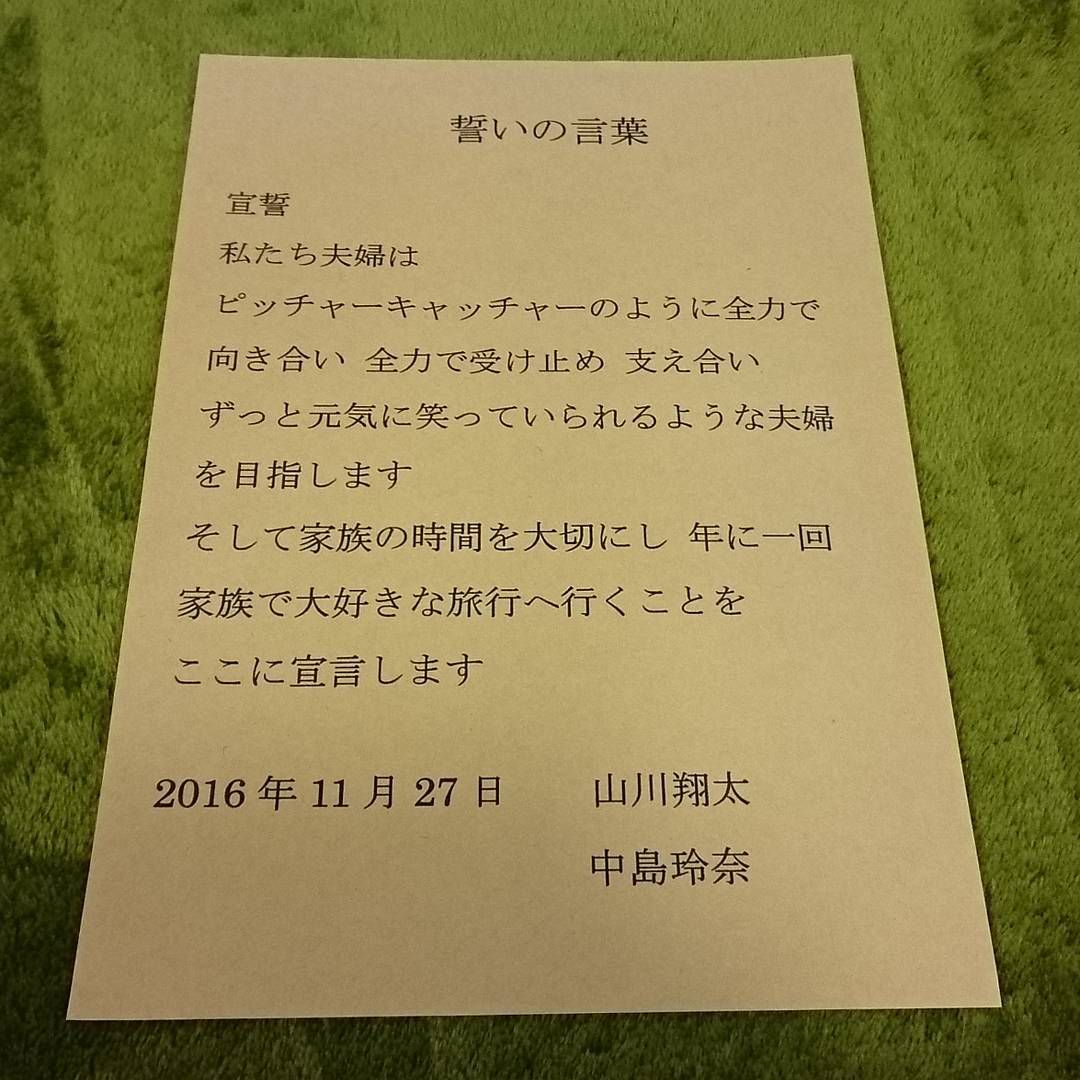 誓いの言葉
宣誓
私たち夫婦は
ピッチャーキャッチャーのように全力で
向き合い 全力で受け止め 支え合い
ずっと元気に笑っていられるような夫婦
を目指します
そして家族の時間を大切にし 年に一回
家族で大好きな旅行へ行くことを
ここに宣言します
2016年11月27日 山川翔太
中島玲奈